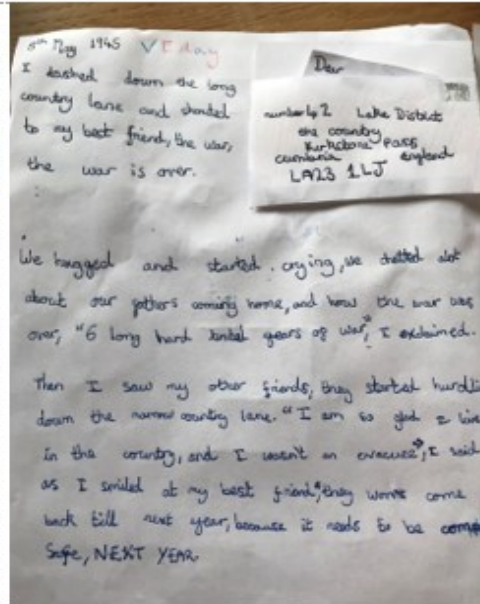 5th May 1945 VE day
I dashed down the long
country lane and shouted
to my best friend, the war,
the war is over.
Dear
number 42 Lake District
the country
Kirkstone Pass
cumbria england
LA23 1LJ
We hugged and started . crying, we chatted alot
about our fathers coming home, and how the war was
over, "6 long hard years of war", I exclaimed.
Then I saw my other friends, they started hurdli
down the narrow country lane. "I am so glad I live
in the country, and I wasn't an evacuee", I said
as I smiled at my best friend, "they wont come
back till next year, because it needs to be
Safe, NEXT YEAR.